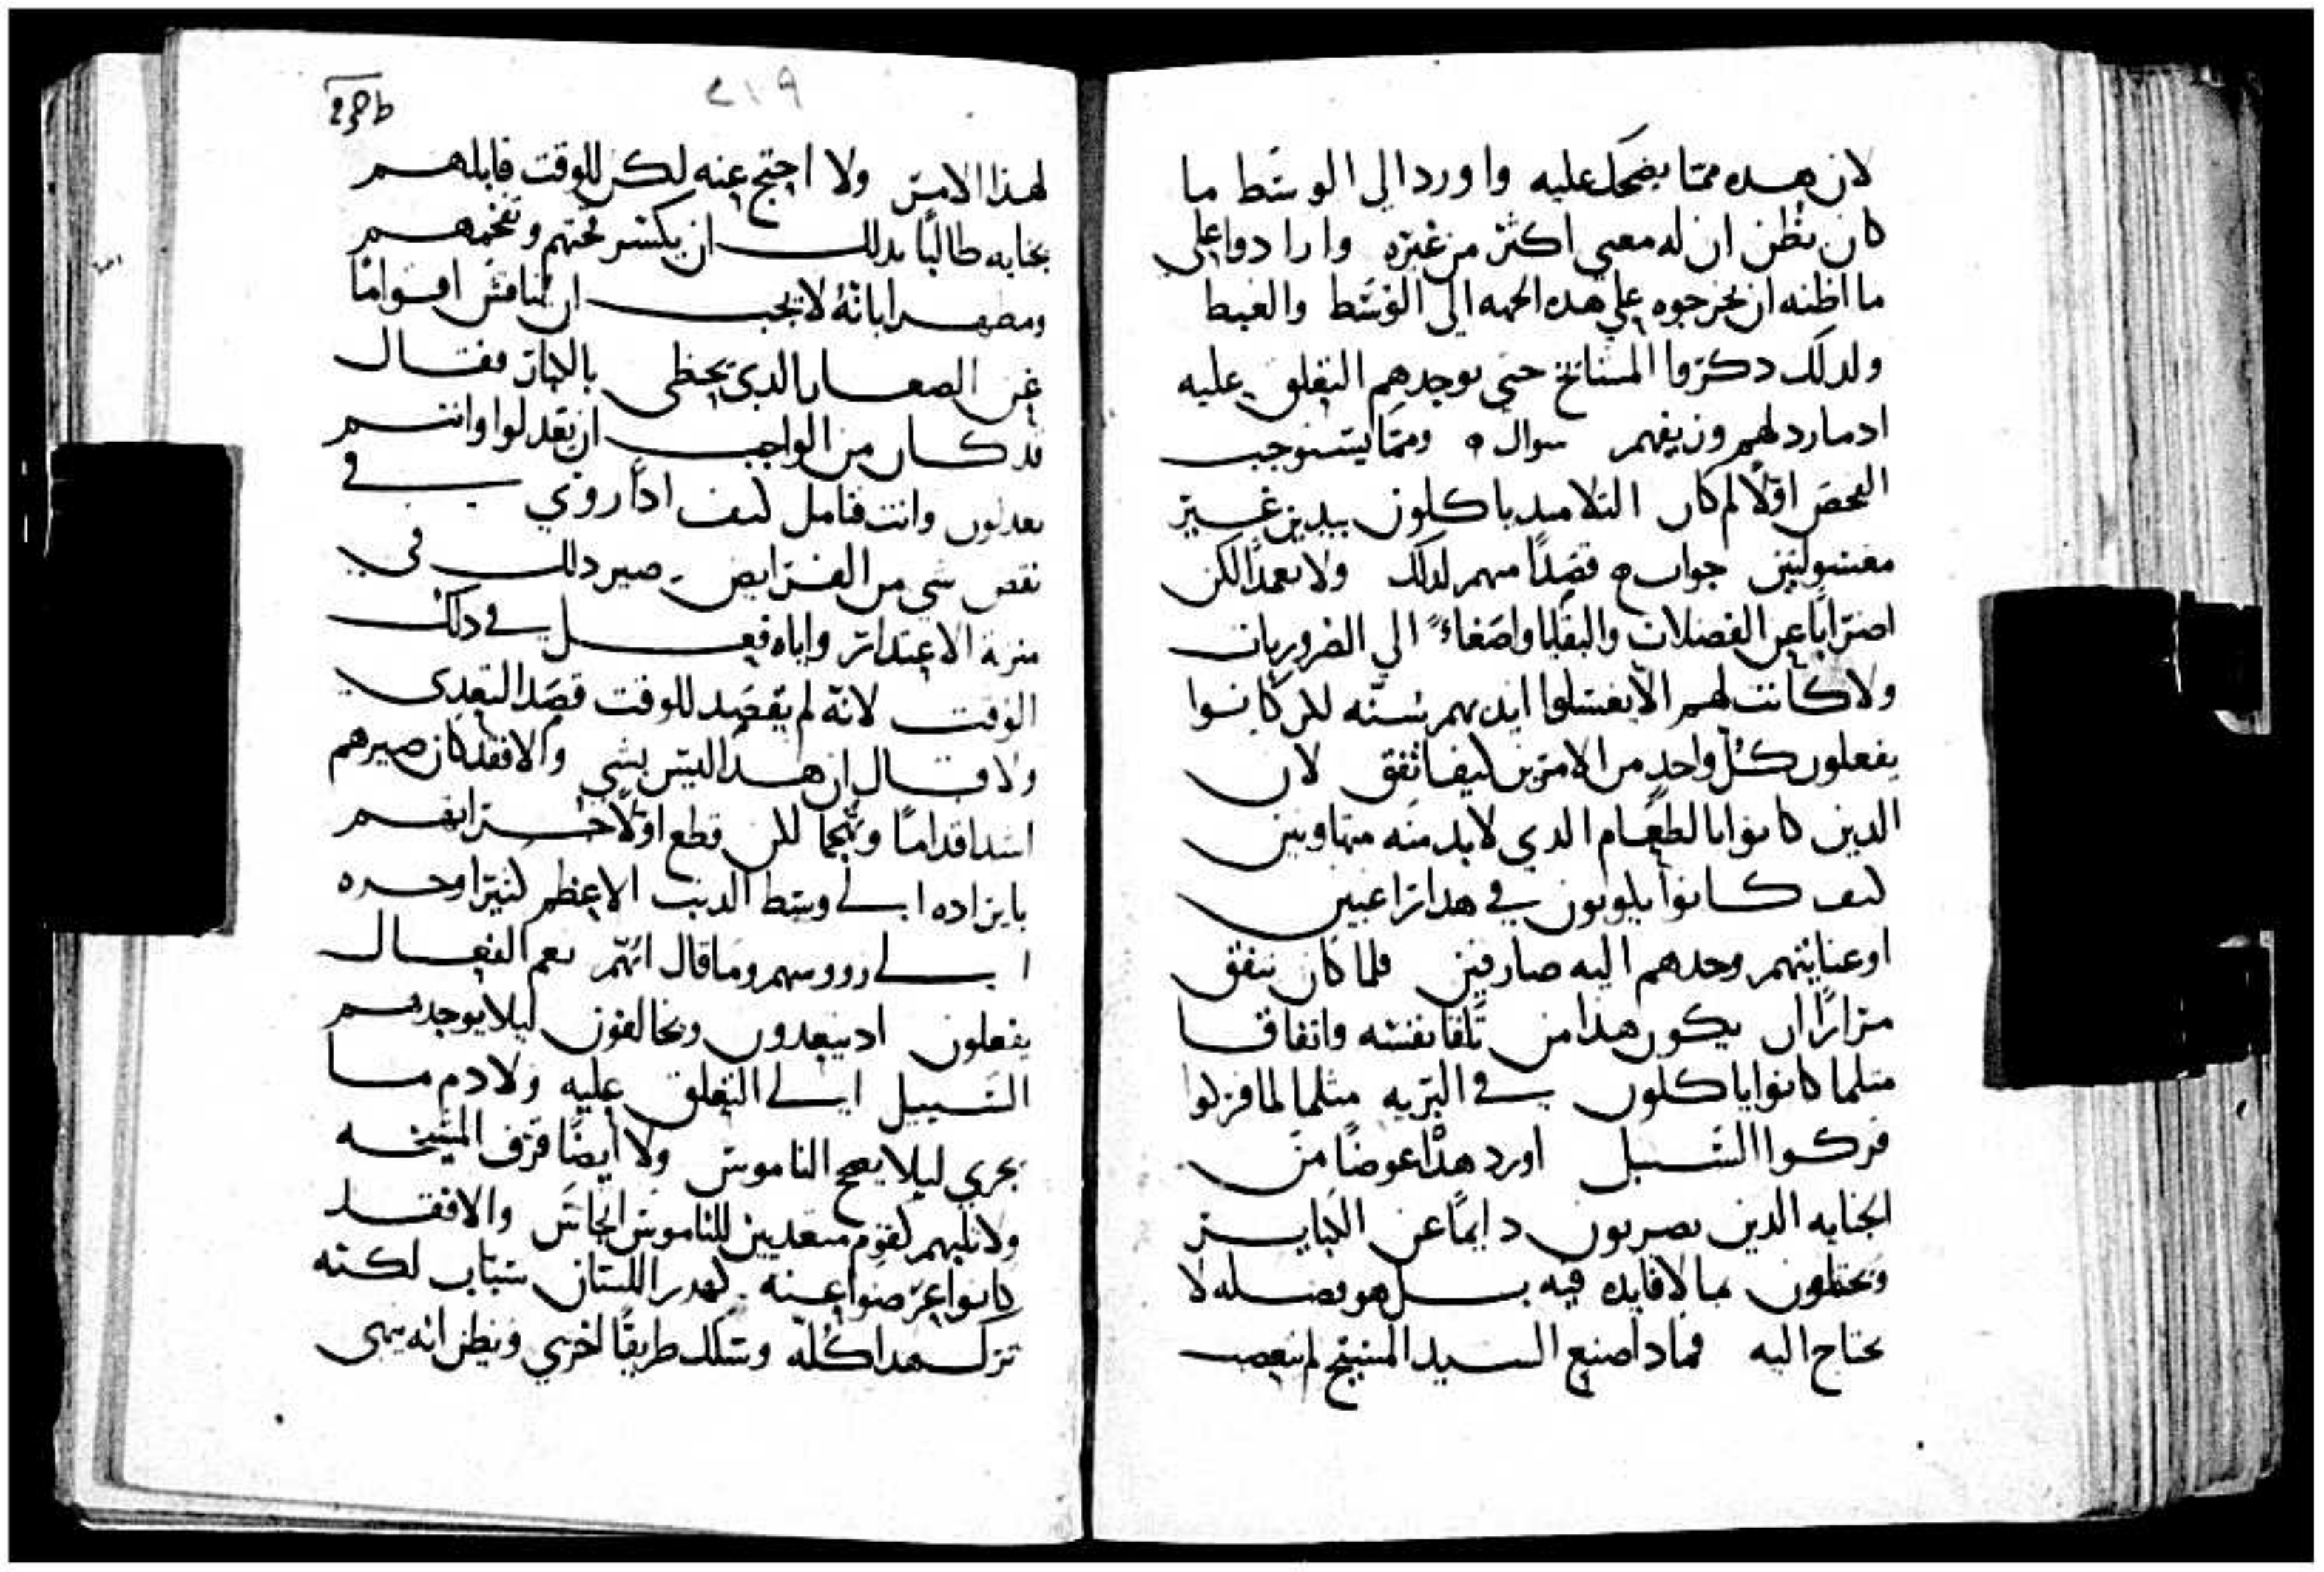 لان هده مما يضحك عليه واورد الي الوسط ما
كان يظن ان له معني اكثر من غيره وارادوا علي
ما اظنه ان يخرجوه علي هده الجهه الي الوسط والغيظ
ولدلك دكروا المشايخ حتي يوجدهم التعلق عليه
ادما رد لهم وزيفهم سوال ه ومما يستوجب
الفحص اولا لم كان التلاميد ياكلون بيدين غير
مغسولتين جواب ه قصدا منهم لدلك ولا تعمدا لكن
اضرابا عن الفضلات والبقايا واصغاء الي الضروريات
ولا كانت لهم الا يغسلوا ايديهم سنه لكن كانوا
يفعلون كل واحد من الامرين كيف اتفق لان
الدين كانوا بالطعام الدي لابد منه متهاونين
كيف كانوا يكونون في هدا راغبين
او عنايتهم وحدهم اليه صارفين فلما كان يتفق
مرارا ان يكون هدا من تلقا نفسه واتفاقا
مثلما كانوا ياكلون في البريه مثلما لما
فركوا السنبل اورد هدا عوضا من
الجنايه الدين يضربون دايما عن الكباير
ويحتفلون بما لا فايده فيه بل هو فضله لا
يحتاج اليه فمادا صنع السيد المسيح لم ينتصب
٢١٩
لهذا الامر ولا احتج عنه لكن للوقت قابلهم
بجنايه طالبا بدلك ان يكسر قحتهم وتقحمهم
ومظهرا بانه لا يجب ان يناقش اقواما
عن الصغاير الدي يخطي بالكبار فقال
قد كان من الواجب ان تعدلوا وانتم
تعدلون وانت فتامل كيف ادا روي في
نقض شي من الفرايض صير دلك في
منزلة الاعتدار واياه فعل في دلك
الوقت لانه لم يقصد للوقت قصد التعدي
ولا قال ان هدا ليس بشي والا فقد كان صيرهم
اشد اقداما وتهجما لكن قطع اولا
بايراده الي وسط الدنب الاعظم كثيرا وجره
الي رووسهم وما قال انهم نعم الفعال
يفعلون اد يتعدون ويخالفون ليلا يوجدهم
السبيل الي التعلق عليه ولا دم ما
يجري ليلا يصحح الناموس ولا ايضا قرف المشيخه
ولا ثلبهم كقوم متعدين للناموس انجاس والا فقد
كانوا اعرضوا عنه كهدر اللسان سباب لكنه
ترك هدا كله وسلك طريقا اخري ويظن انه ينهي